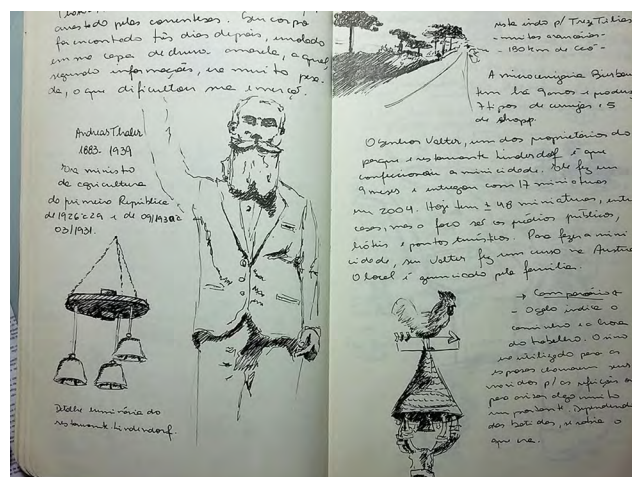 arrastado pelas correntezas. Seu corpo
foi encontrado três dias depois, enrolado
em sua capa de chuva amarela, a qual
segundo informação, era muito pesa-
da, o que dificultou sua imersão.
Andreas Thaler
1883-1939
Era ministro
da agricultura
da primeira República
de 1926 a 29 e de 09/1930 a
03/1931.
Detalhe luminária do
restaurante Lindendorf.
vista indo p/ Treze Tílias
- muitas araucárias -
- 180 km de
A microcervejaria
tem há 9 anos e produz
7 tipos de cervejas e 5
de chopp.
O senhor Valter, um dos proprietários do
parque e restaurante Lindendorf é que
confeccionou a mini cidade. Ele fez em
9 meses e entregou com 17 miniaturas
em 2004. Hoje tem ± 48 miniaturas, entre
casas, mas o foco são os prédios públicos,
hotéis e pontos turísticos. Para fazer a mini
cidade, seu Valter fez um curso na Áustria.
O local é gerenciado pela família.
→ Campanário
- O galo indica o
caminho e a hora
do trabalho. O sino
era utilizado para as
esposas chamarem seus
maridos p/ as refeições ou
para avisar algo muito
importante. Dependendo
das batidas, se sabia o
que era.